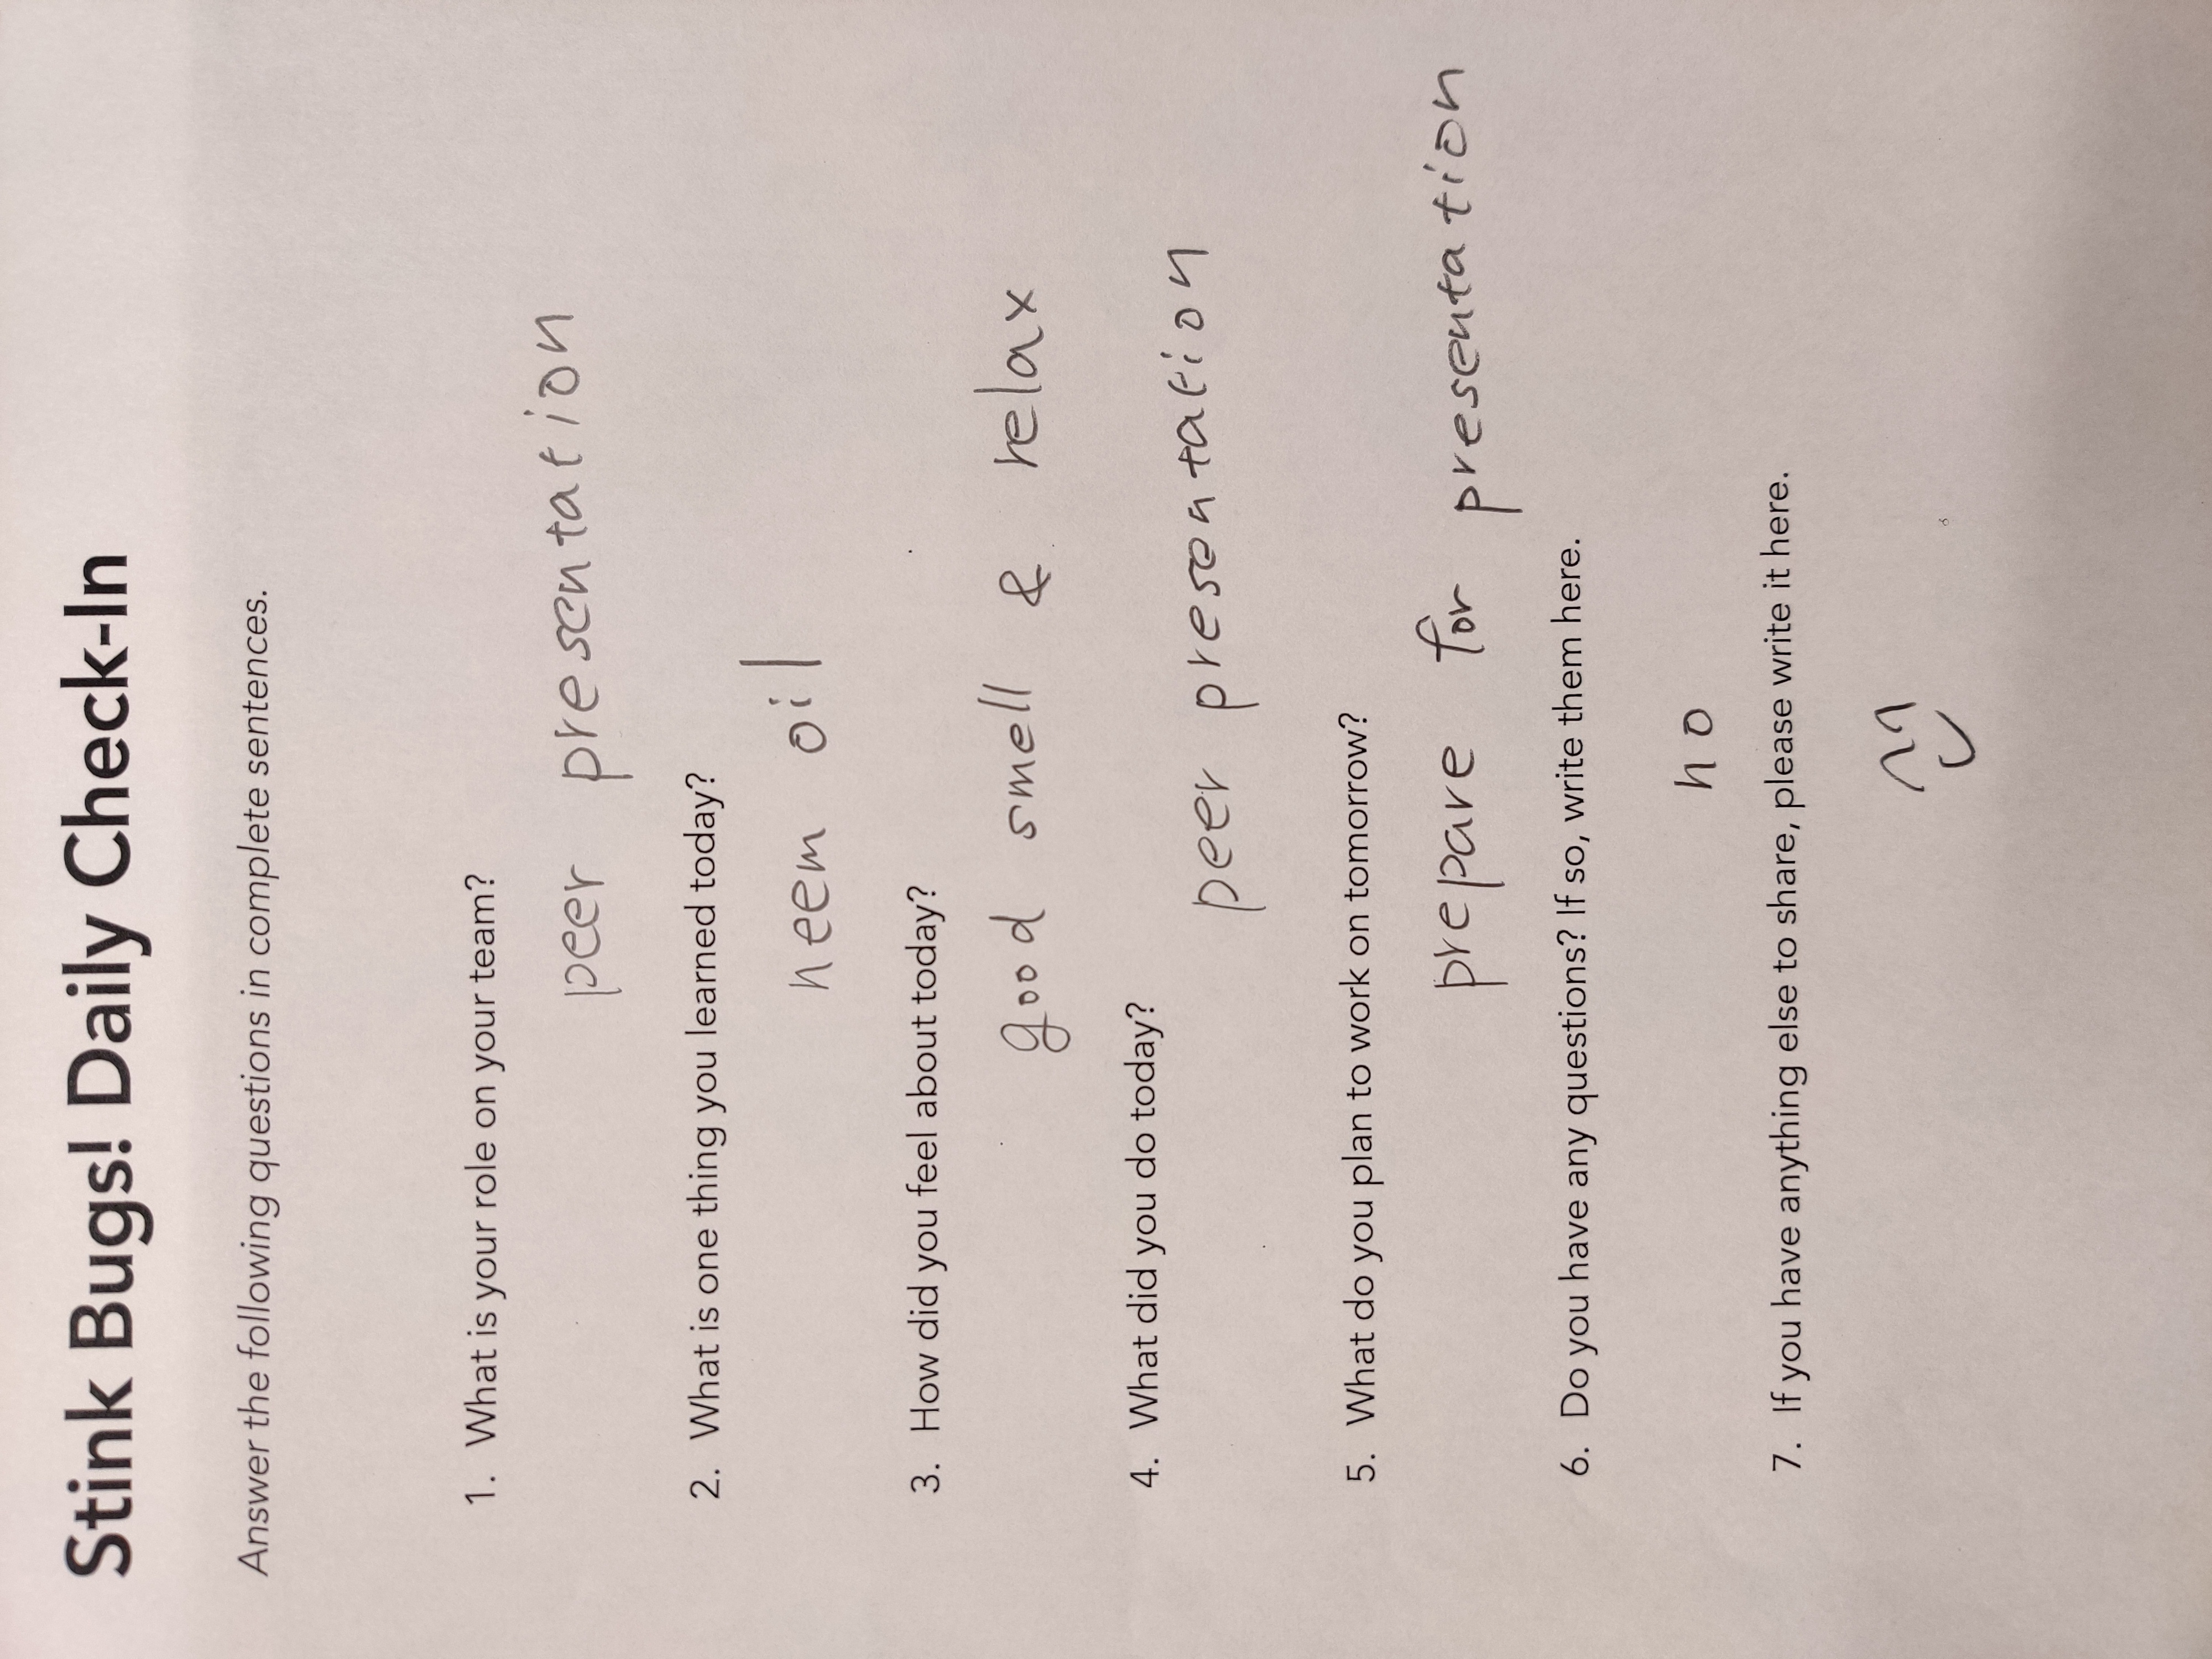 Stink Bugs! Daily Check-In
Answer the following questions in complete sentences.
1. What is your role on your team?
peer presentation
2. What is one thing you learned today?
neem oil
3. How did you feel about today?
good smell & relax
4. What did you do today?
peer presentation
5. What do you plan to work on tomorrow?
prepare for presentation
6. Do you have any questions? If so, write them here.
no
7. If you have anything else to share, please write it here.